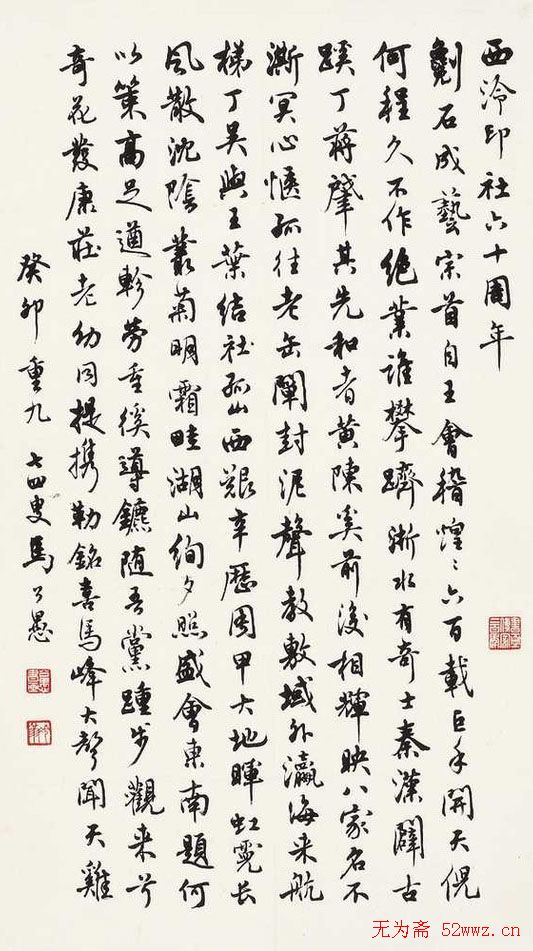 西泠印社六十周年
劖石成藝宗首自王會稽煌〻六百載巨手開天倪
何程久不作絕業誰攀躋浙水有奇士秦漢闢古
蹊丁蔣肇其先和者黃陳奚前後相輝映八家名不
澌冥心愜孤往老缶闡封泥聲教敷域外瀛海来航
梯丁吳與王葉結社孤山西艱辛歷周甲大地暉虹霓長
風散沈陰叢菊明霜畦湖山絢夕照盛會東南題何
以策高足遒軫勞重徯導鑣随吾黨踵步觀来兮
奇花發康莊老幼同提携勒銘喜馬峰大聲聞天雞
癸卯重九七四叟馬公愚
无为斋 52wwz.cn